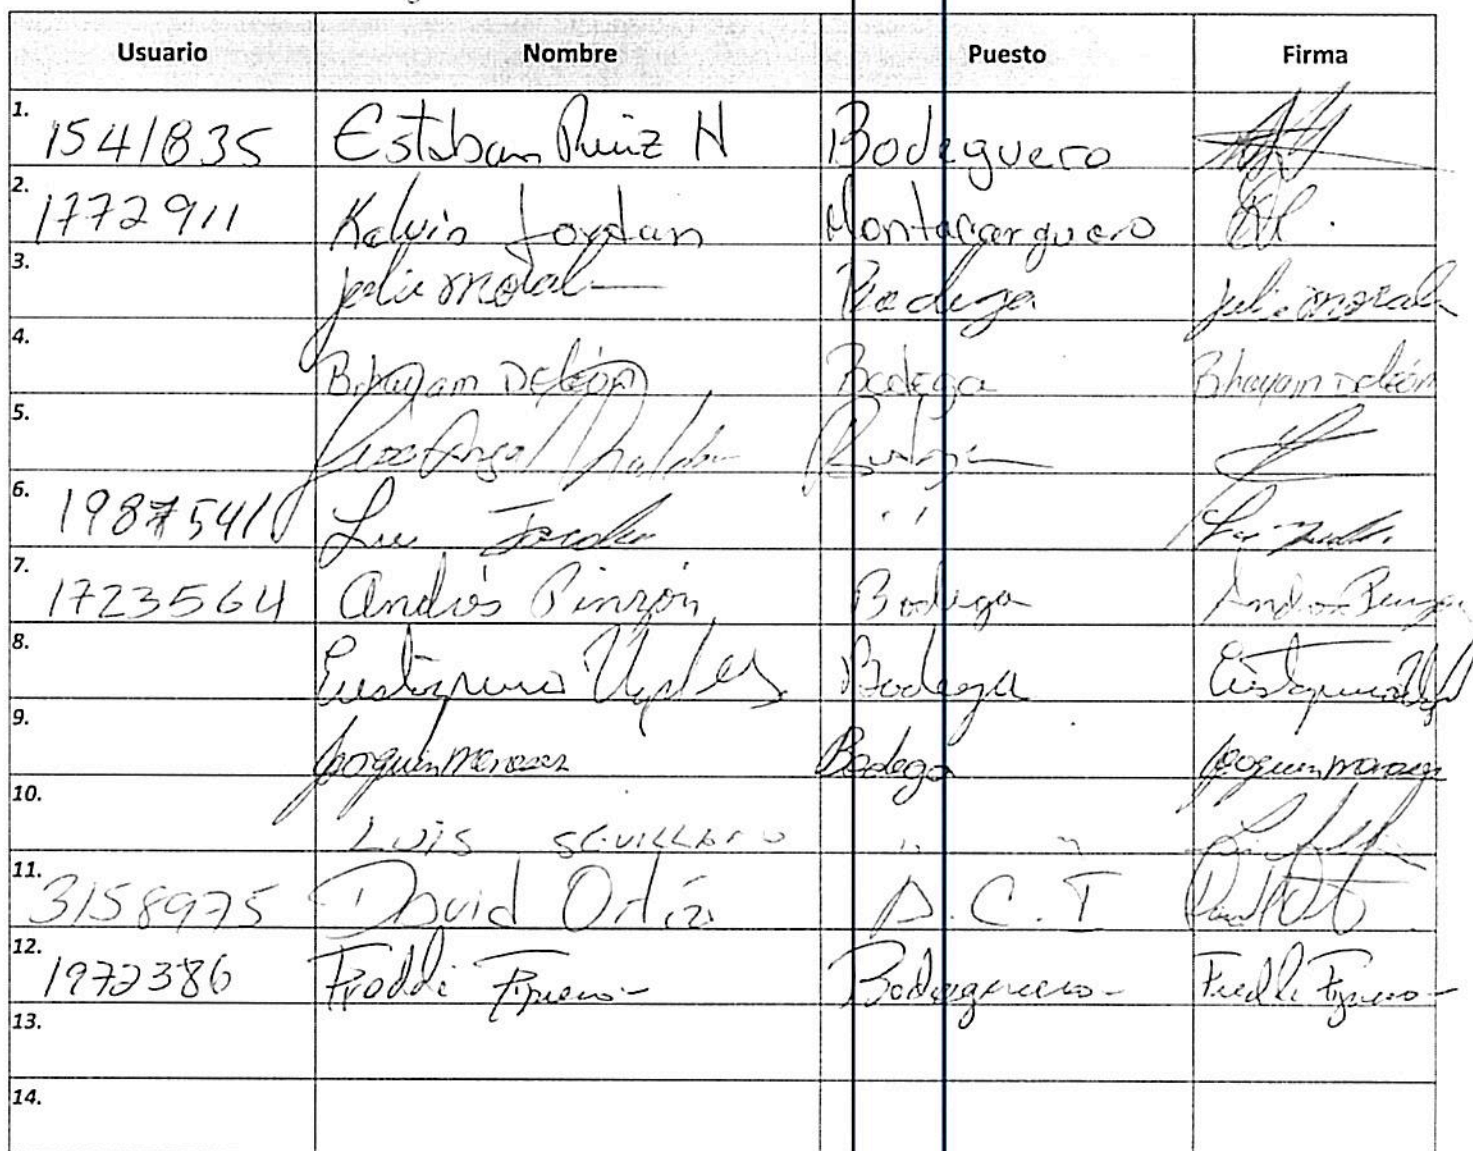 Usuario Nombre Puesto Firma
1. 1541835 Esteban Ruiz H Bodeguero
2. 1772911 Kelvin Jordan Montacarguero
3. julio moral Bodega julio moral
4. Bhayam DeLeón Bodega Bhayam DeLeón
5. Jose Angel Bodega
6. 1987541 Luis " "
7. 17223564 Andrés Pinzón Bodega
8. Eustaquio Bodega Eustaquio
9. Joaquin meneses Bodega Joaquin meneses
10. LUIS SEVILLANO " "
11. 3158975 David Ortíz A.C.T
12. 1972386 Freddi Figueroa Bodeguero Freddi Figueroa
13.
14.